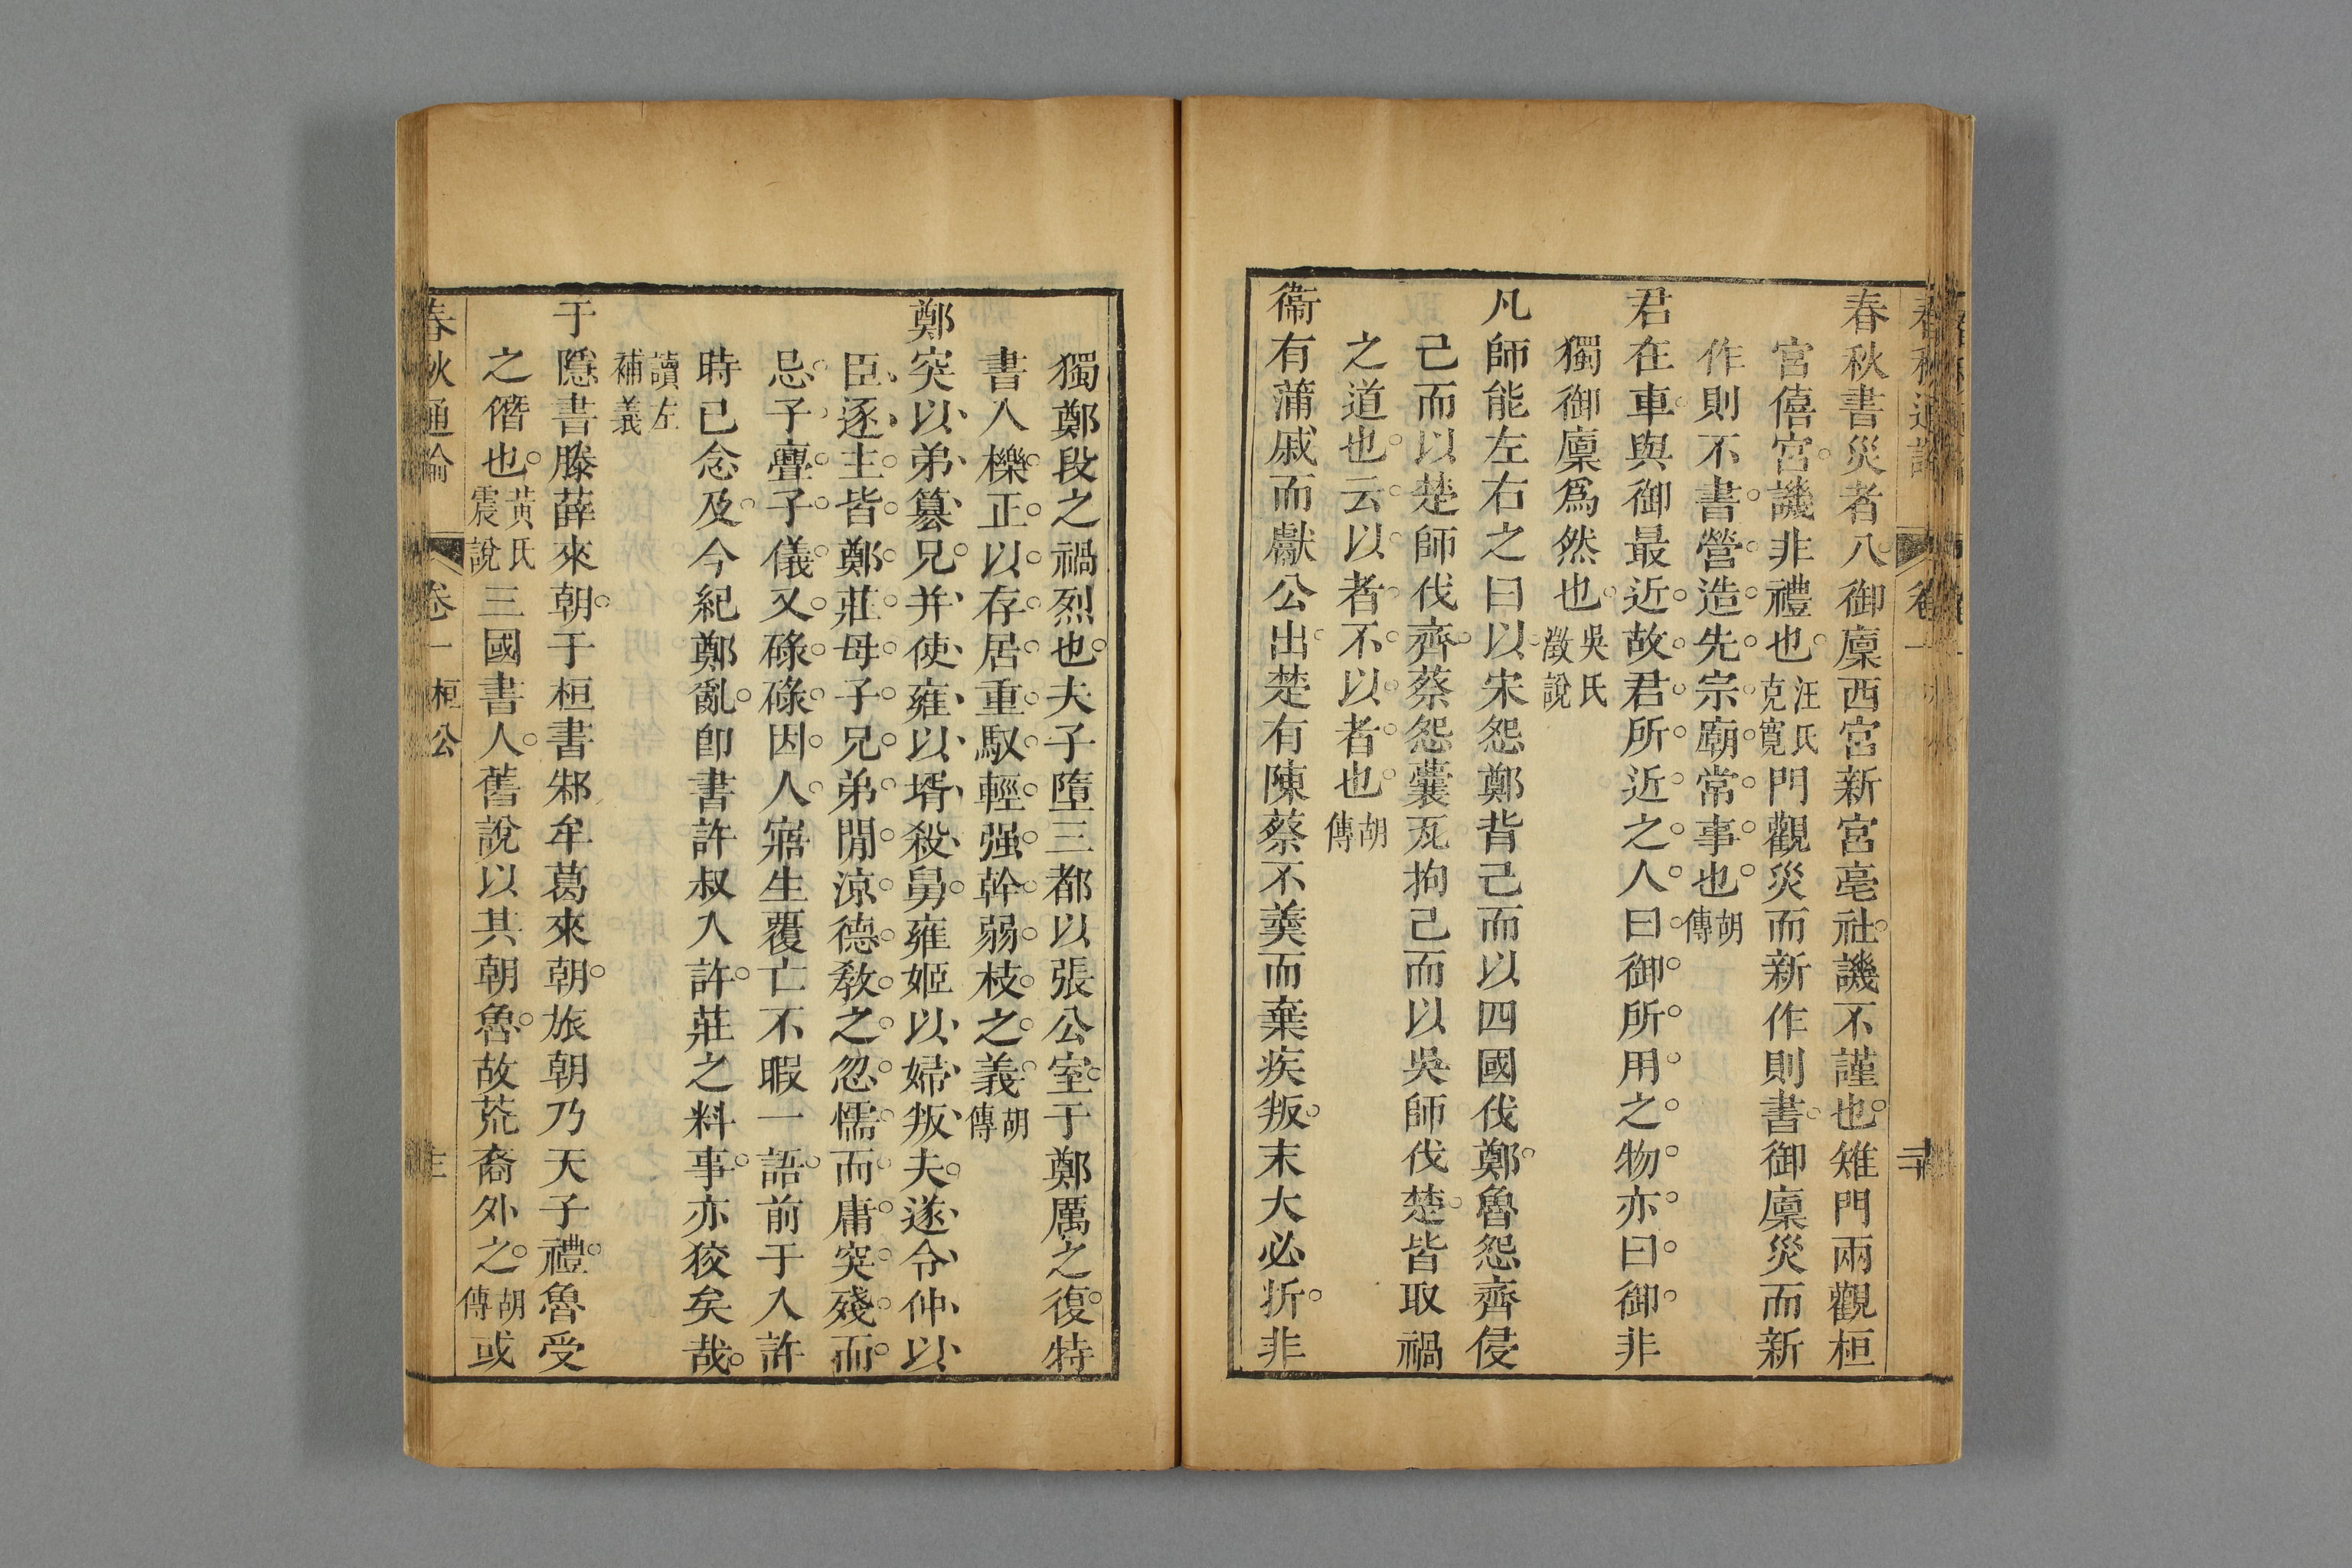 春秋書災者八御廩西宮新宮亳社譏不謹也雉門兩觀桓
宮僖宮譏非禮也汪氏克寬門觀災而新作則書御廩災而新
作則不書營造先宗廟常事也胡傳
君在車與御最近故君所近之人曰御所用之物亦曰御非
獨御廩爲然也吳氏澂說
凡師能左右之曰以宋怨鄭背己而以四國伐鄭魯怨齊侵
己而以楚師伐齊蔡怨囊瓦拘己而以吳師伐楚皆取禍
之道也云以者不以者也胡傳
衞有蒲戚而獻公出楚有陳蔡不羹而棄疾叛末大必折非
獨鄭段之禍烈也夫子墮三都以張公室于鄭厲之復特
書入櫟正以存居重馭輕强幹弱枝之義胡傳
鄭突以弟簒兄并使雍以壻殺舅雍姬以婦叛夫遂令仲以
臣逐主皆鄭莊母子兄弟閒涼德敎之忽懦而庸突殘而
忌子亹子儀又碌碌因人寤生覆亡不暇一語前于入許
時已念及今紀鄭亂卽書許叔入許莊之料事亦狡矣哉
讀左補義
于隱書滕薛來朝于桓書邾牟葛來朝旅朝乃天子禮魯受
之僭也黃氏震說三國書人舊說以其朝魯故荒裔外之胡傳或
春秋通論 卷一 桓公